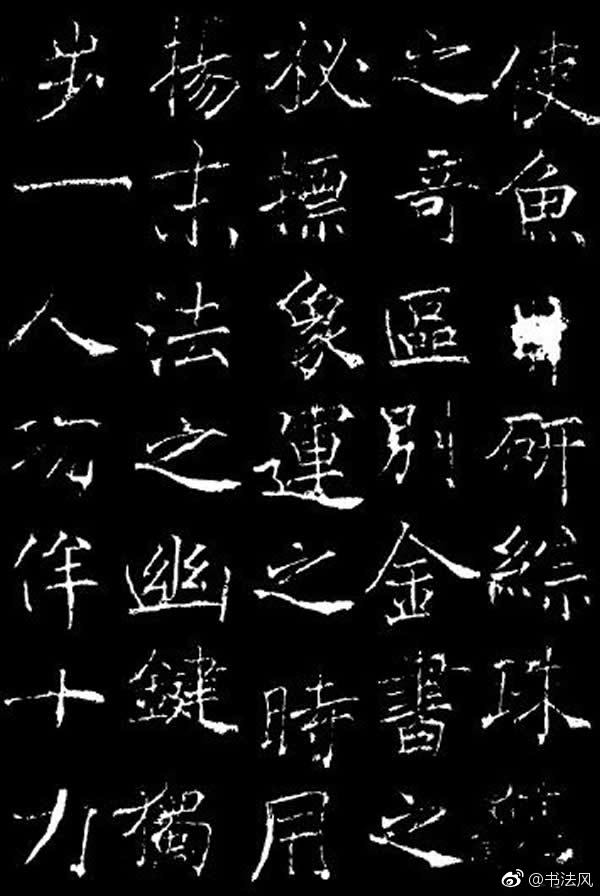 使魚研綜珠
之哥區別金書之
祕摽象運之時用
揚末法之幽鍵獨
步一人功侔十力
@书法风